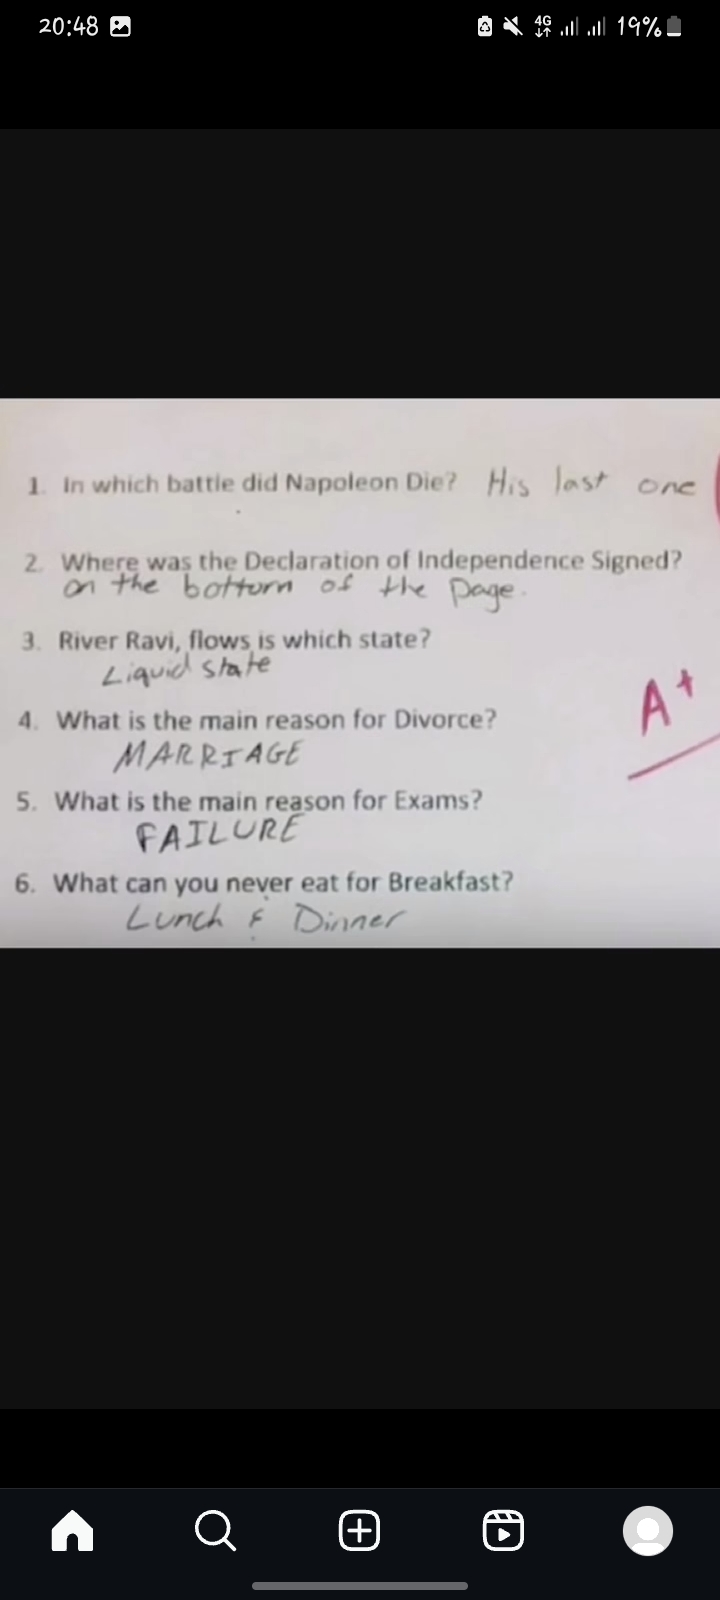 20:48 4G 19%
1. In which battle did Napoleon Die? His last one
2. Where was the Declaration of Independence Signed?
on the bottom of the page.
3. River Ravi, flows is which state?
Liquid state
A+
4. What is the main reason for Divorce?
MARRIAGE
5. What is the main reason for Exams?
FAILURE
6. What can you never eat for Breakfast?
Lunch & Dinner